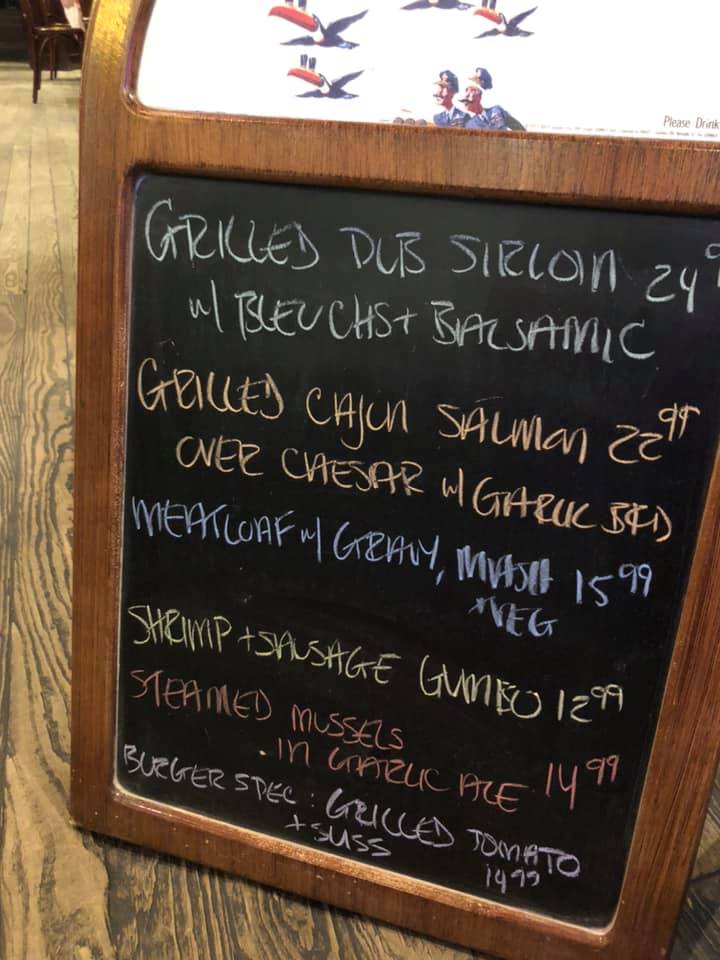 Please Drink
GRILLED DUB SIRLOIN 24 9
w/ BLEU CHS + BALSAMIC
GRILLED CAJUN SALMON 22 99
OVER CAESAR w/ GARLIC BRD
MEATLOAF w/ GRAVY, MASH 15 99
+ VEG
SHRIMP + SAUSAGE GUMBO 12 99
STEAMED MUSSELS
IN GARLIC ALE 14 99
BURGER SPEC: GRILLED TOMATO
+ SWSS
14 99